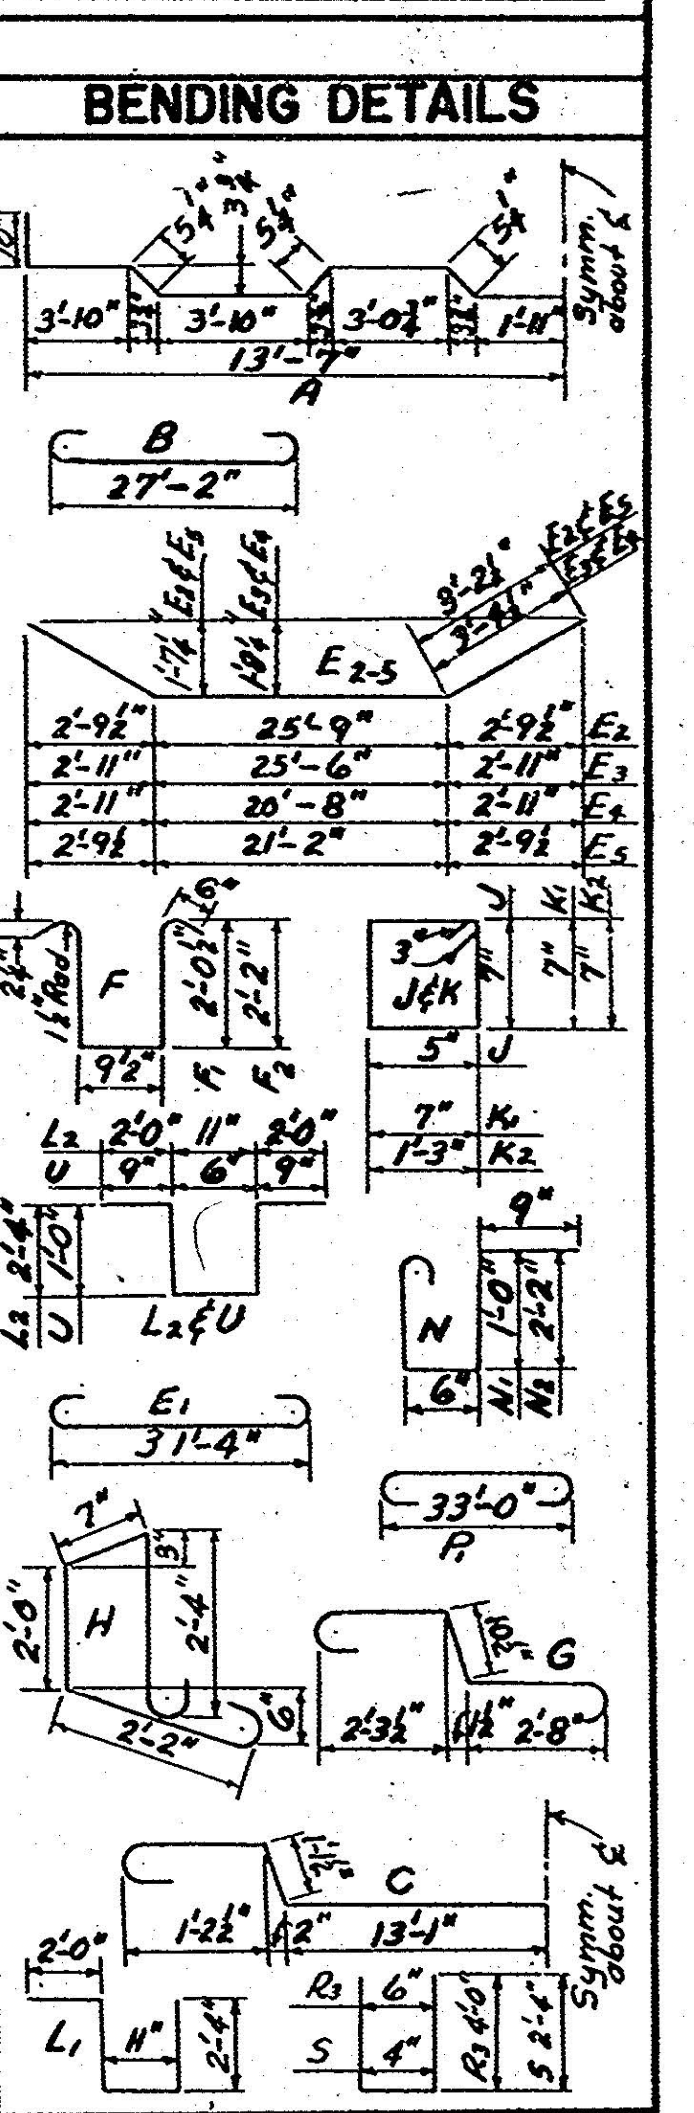 BENDING DETAILS
5¼" 3¾" 5¼" 5¼"
Symm. about ℄
3'-10" 3¾" 3'-10" 3¾" 3'-0¾" 3¾" 1'-11"
13'-7"
A
B
27'-2"
1'-7¼" E2 & E5
1'-8¼" E3 & E4
3'-2½" E2 & E5
3'-4½" E3 & E4
E2-5
2'-9½" 25'-9" 2'-9½" E2
2'-11" 25'-6" 2'-11" E3
2'-11" 20'-8" 2'-11" E4
2'-9½ 21'-2" 2'-9½ E5
6"
2¼"
1½" Rad.
F
2'-0½" 2'-2"
9½"
F1 F2
J K1 K2
3"
J&K
7" 7" 7"
5" J
7" K1
1'-3" K2
L2 2'-0" 11" 2'-0"
U 9" 6" 9"
2'-4" 1'-0"
L2 U
L2 & U
9"
N
1'-0" 2'-2"
6"
N1 N2
E1
31'-4"
33'-0"
P1
7"
3"
2'-0"
H
2'-4"
6"
2'-2"
G
2'-3½" 1½" 2'-8"
C
1'-2½" 2" 13'-1"
Symm. about ℄
2'-0"
L1
H"
2'-4"
R3 6"
S 4"
R3 4'-0"
S 2'-4"